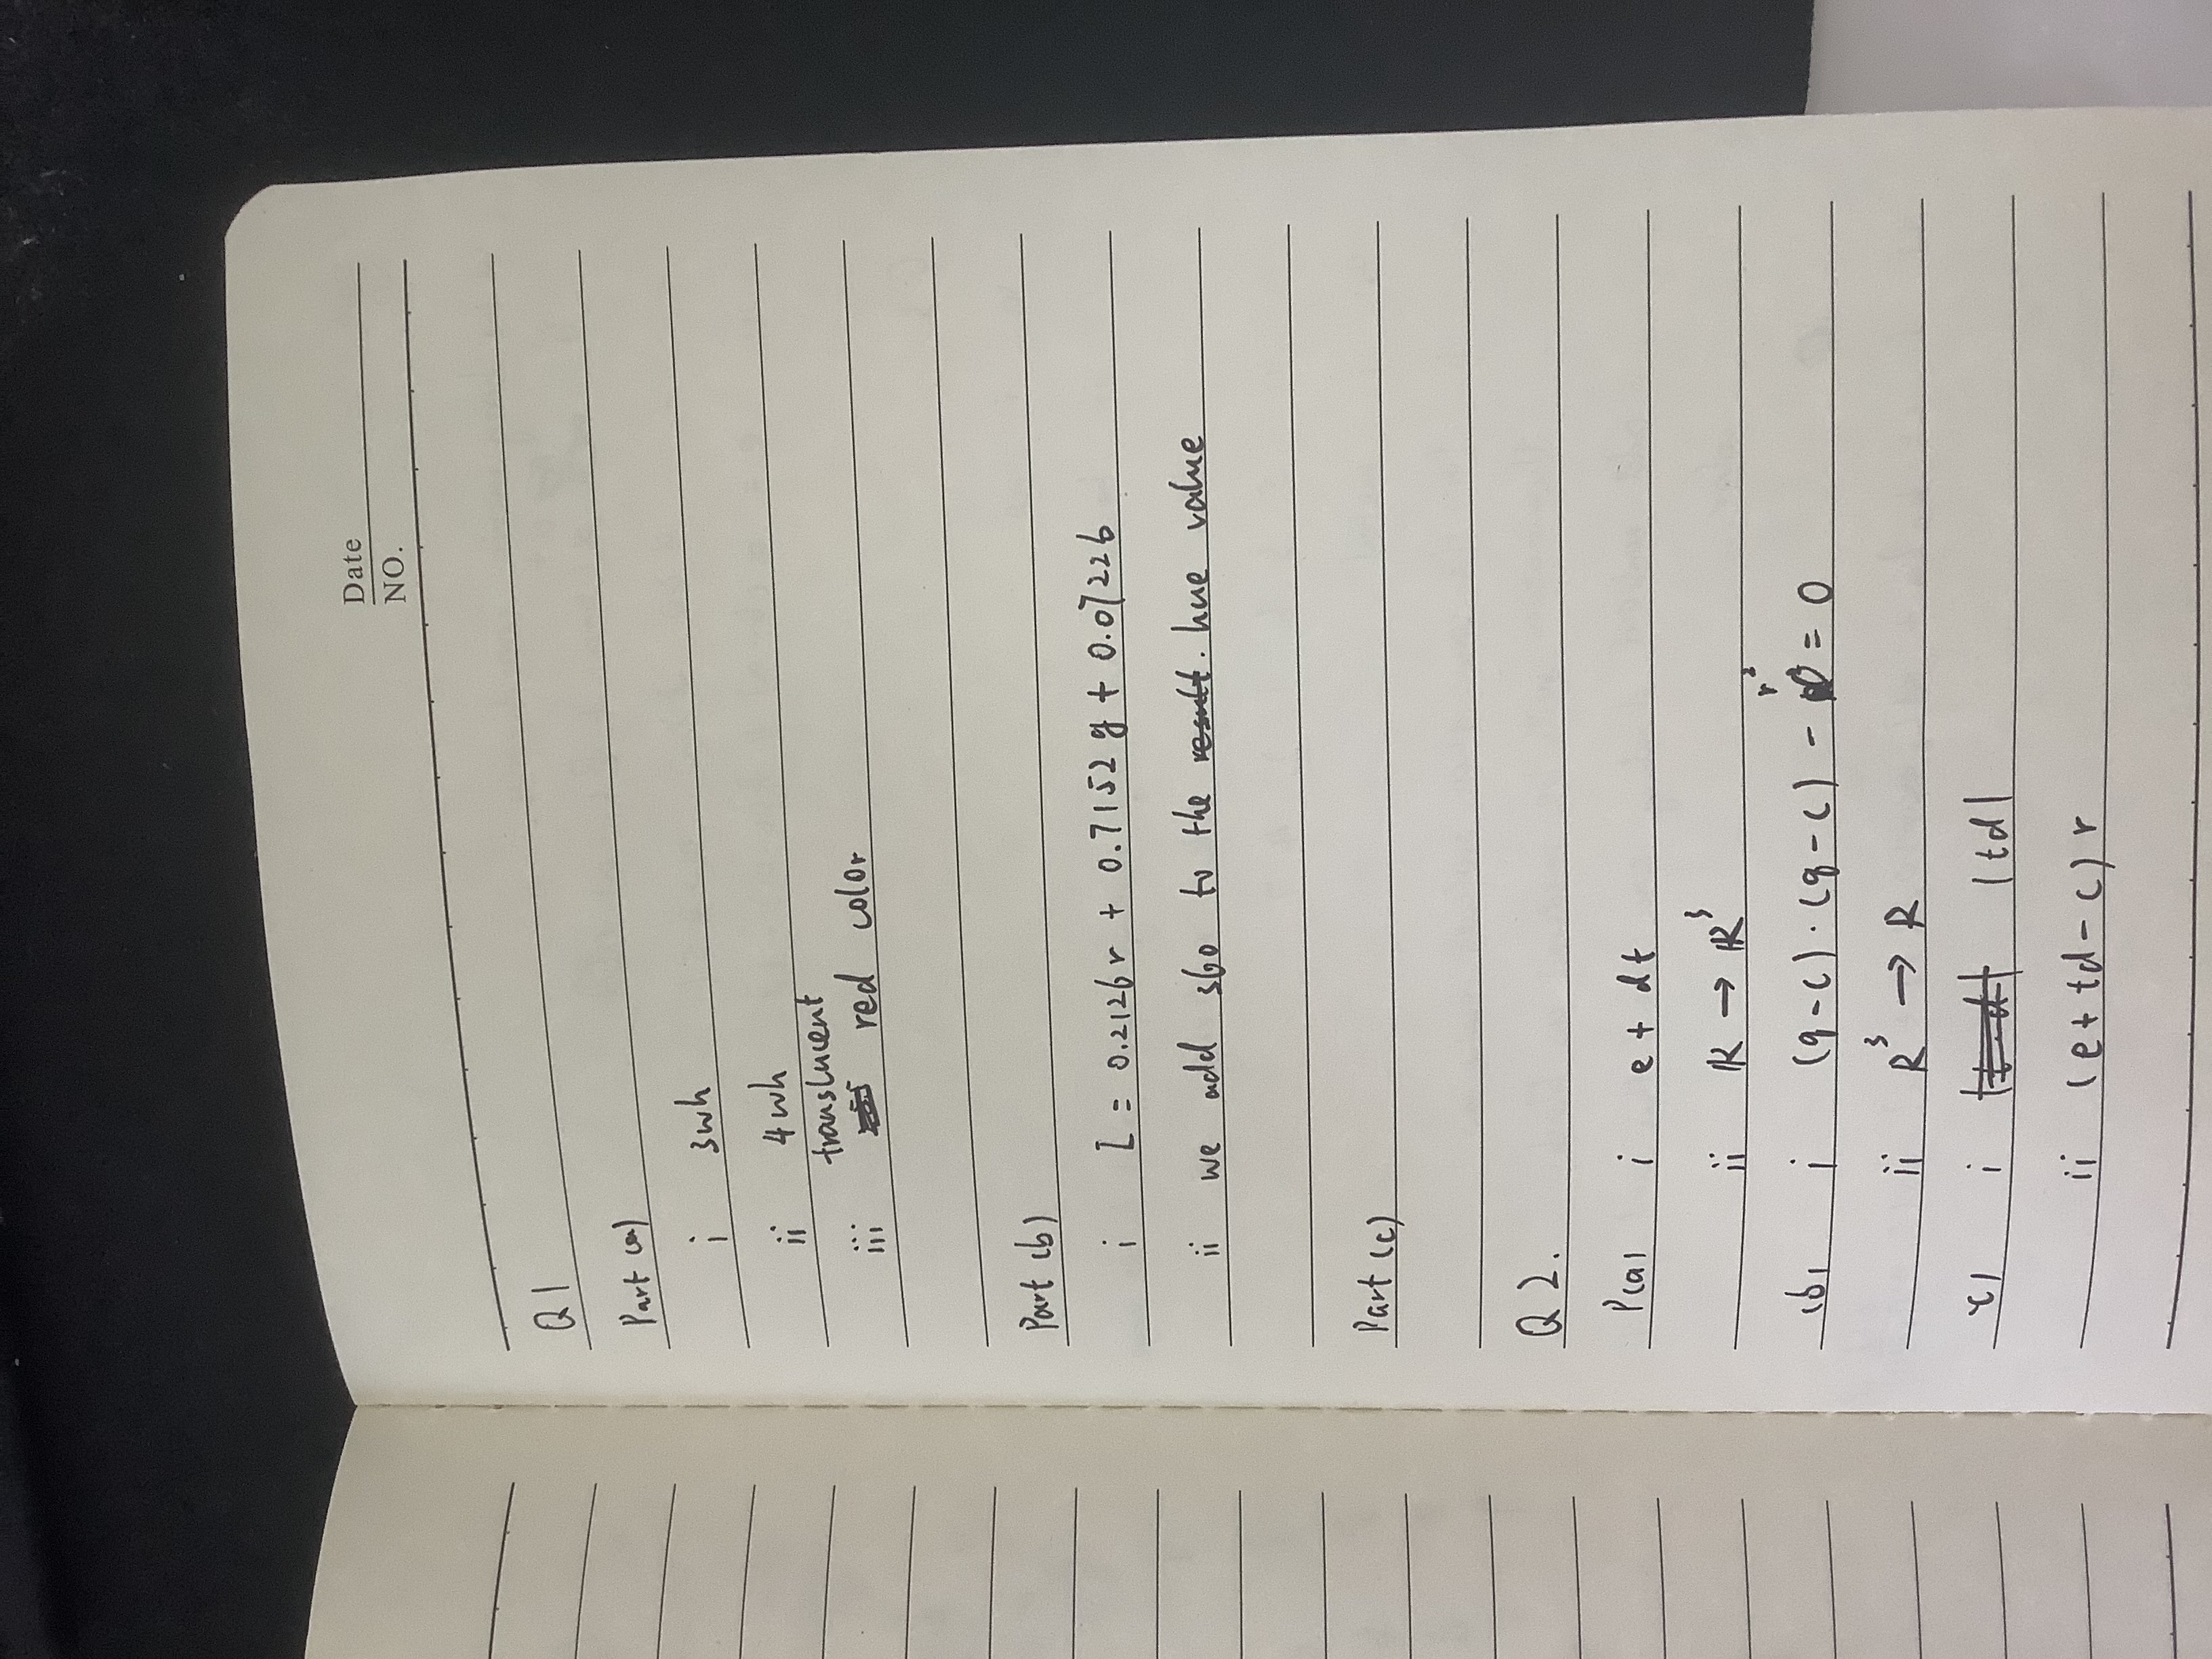 Date
NO.
Q1
Part (a)
i 3wh
ii 4wh
translucent
iii red color
Part (b)
i L = 0.2126r + 0.7152g + 0.0722b
ii we add 360 to the result. hue value
Part (c)
Q2.
P(a) i e + dt
ii ℝ → ℝ³
(b) i (q-c)·(q-c) - r² = 0
ii R³ → R
(c) i |t·d| |td|
ii (e+td-c) r